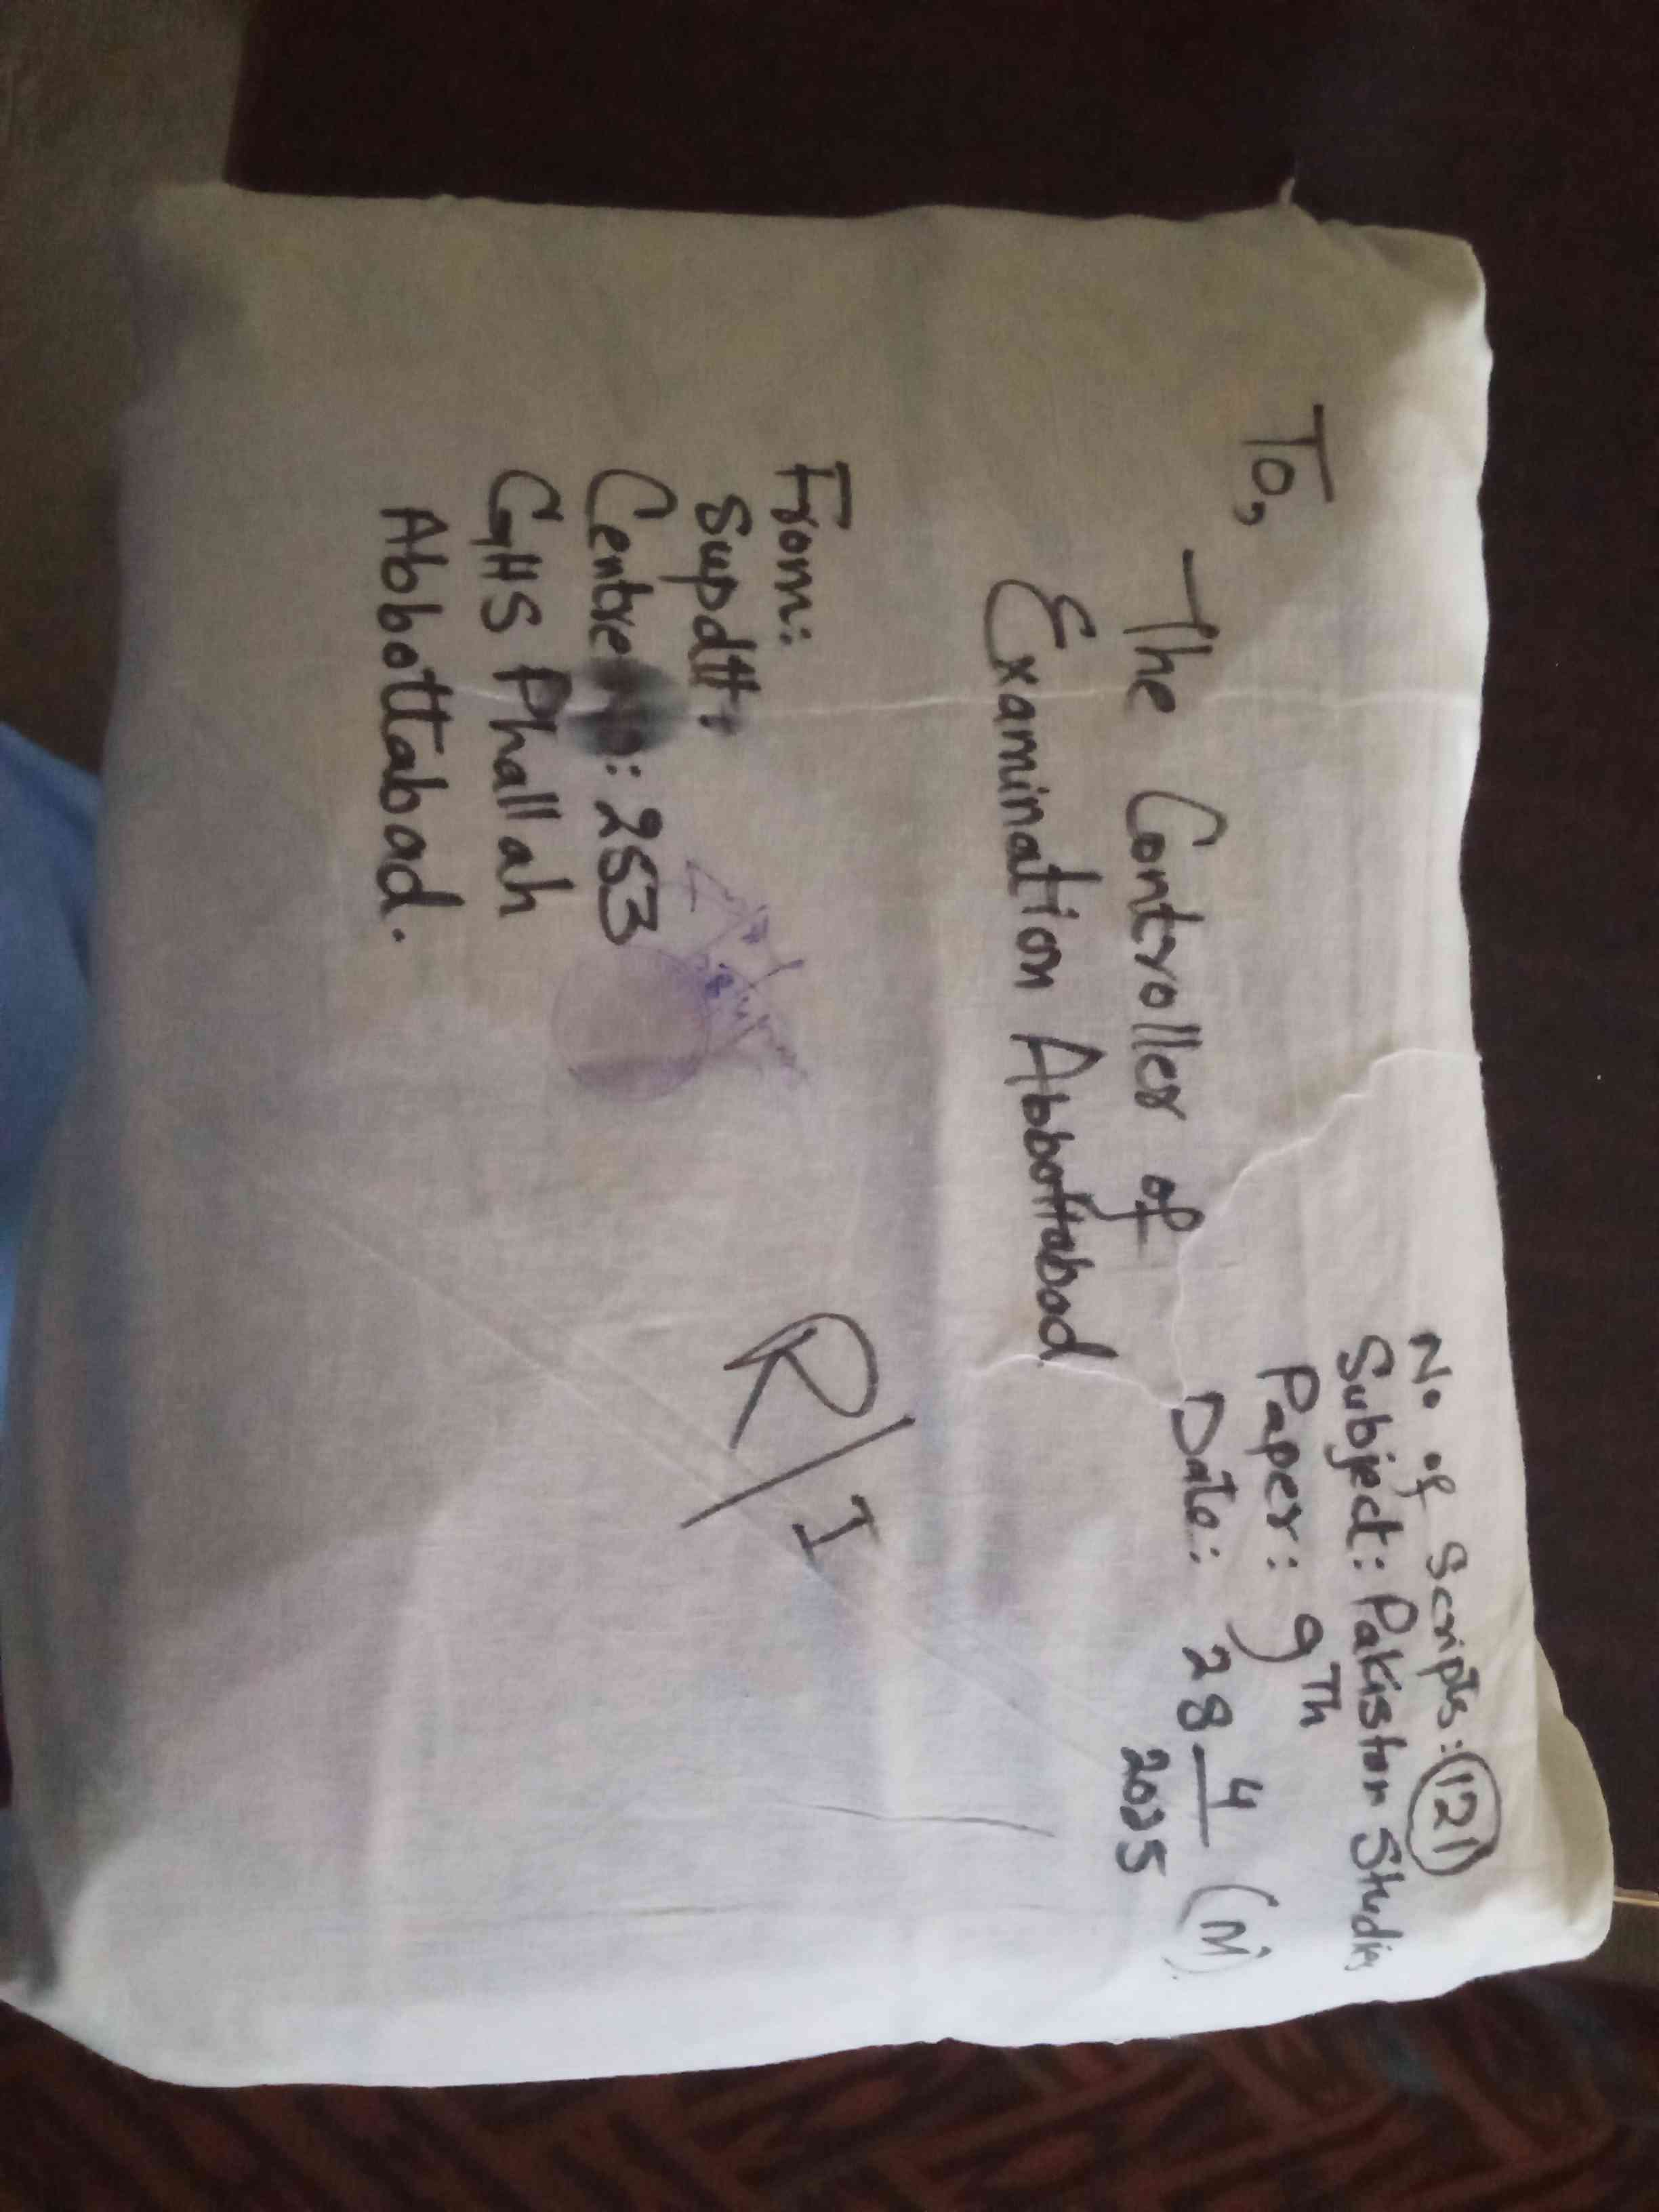 No of Scripts: 121
Subject: Pakistan Studies
Paper: 9Th
Date: 28 4/2025 (M)
To,
The Controller of
Examination Abbottabad
R/I
From:
Supdtt.
Centre No: 253
GHS Phallah
Abbottabad.